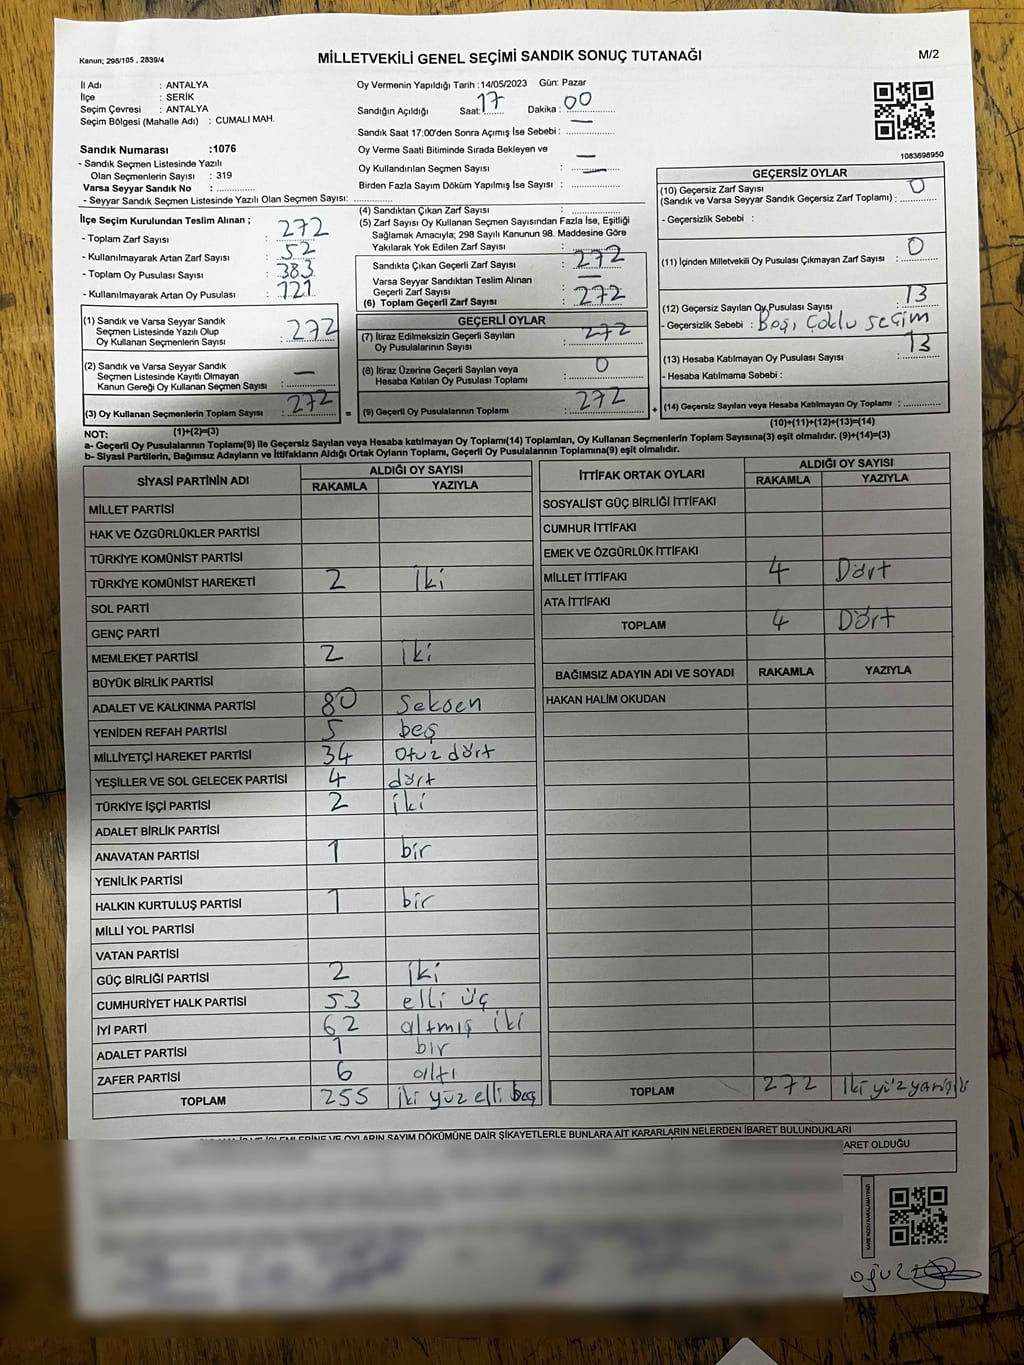 Kanun; 298/105 , 2839/4
MİLLETVEKİLİ GENEL SEÇİMİ SANDIK SONUÇ TUTANAĞI
M/2
İl Adı : ANTALYA
İlçe : SERİK
Seçim Çevresi : ANTALYA
Seçim Bölgesi (Mahalle Adı) : CUMALI MAH.
Sandık Numarası :1076
- Sandık Seçmen Listesinde Yazılı
Olan Seçmenlerin Sayısı : 319
Varsa Seyyar Sandık No : ..............
- Seyyar Sandık Seçmen Listesinde Yazılı Olan Seçmen Sayısı: ..............
Oy Vermenin Yapıldığı Tarih :14/05/2023 Gün: Pazar
Sandığın Açıldığı Saat: 17 Dakika : 00
Sandık Saat 17:00'den Sonra Açımış İse Sebebi : —
Oy Verme Saati Bitiminde Sırada Bekleyen ve
Oy Kullandırılan Seçmen Sayısı : —
Birden Fazla Sayım Döküm Yapılmış İse Sayısı : —
1083698950
İlçe Seçim Kurulundan Teslim Alınan ;
- Toplam Zarf Sayısı : 272
- Kullanılmayarak Artan Zarf Sayısı : 52
- Toplam Oy Pusulası Sayısı : 383
- Kullanılmayarak Artan Oy Pusulası : 121
(1) Sandık ve Varsa Seyyar Sandık
Seçmen Listesinde Yazılı Olup
Oy Kullanan Seçmenlerin Sayısı : 272
(2) Sandık ve Varsa Seyyar Sandık
Seçmen Listesinde Kayıtlı Olmayan
Kanun Gereği Oy Kullanan Seçmen Sayısı : —
(3) Oy Kullanan Seçmenlerin Toplam Sayısı : 272
(1)+(2)=(3)
(4) Sandıktan Çıkan Zarf Sayısı : ..............
(5) Zarf Sayısı Oy Kullanan Seçmen Sayısından Fazla İse, Eşitliği
Sağlamak Amacıyla; 298 Sayılı Kanunun 98. Maddesine Göre
Yakılarak Yok Edilen Zarf Sayısı : ..............
Sandıkta Çıkan Geçerli Zarf Sayısı : 272
Varsa Seyyar Sandıktan Teslim Alınan
Geçerli Zarf Sayısı : —
(6) Toplam Geçerli Zarf Sayısı : 272
GEÇERLİ OYLAR
(7) İtiraz Edilmeksizin Geçerli Sayılan
Oy Pusulalarının Sayısı : 272
(8) İtiraz Üzerine Geçerli Sayılan veya
Hesaba Katılan Oy Pusulası Toplamı : 0
= (9) Geçerli Oy Pusulalarının Toplamı : 272
GEÇERSİZ OYLAR
(10) Geçersiz Zarf Sayısı 0
(Sandık ve Varsa Seyyar Sandık Geçersiz Zarf Toplamı) : ..............
- Geçersizlik Sebebi :
(11) İçinden Milletvekili Oy Pusulası Çıkmayan Zarf Sayısı : 0
(12) Geçersiz Sayılan Oy Pusulası Sayısı : 13
- Geçersizlik Sebebi : Boşı Çoklu seçim
(13) Hesaba Katılmayan Oy Pusulası Sayısı : 13
- Hesaba Katılmama Sebebi :
+ (14) Geçersiz Sayılan veya Hesaba Katılmayan Oy Toplamı : ..............
(10)+(11)+(12)+(13)=(14)
NOT:
a- Geçerli Oy Pusulalarının Toplamı(9) ile Geçersiz Sayılan veya Hesaba katılmayan Oy Toplamı(14) Toplamları, Oy Kullanan Seçmenlerin Toplam Sayısına(3) eşit olmalıdır. (9)+(14)=(3)
b- Siyasi Partilerin, Bağımsız Adayların ve İttifakların Aldığı Ortak Oyların Toplamı, Geçerli Oy Pusulalarının Toplamına(9) eşit olmalıdır.
SİYASİ PARTİNİN ADI
ALDIĞI OY SAYISI
RAKAMLA YAZIYLA
MİLLET PARTİSİ
HAK VE ÖZGÜRLÜKLER PARTİSİ
TÜRKİYE KOMÜNİST PARTİSİ
TÜRKİYE KOMÜNİST HAREKETİ 2 iki
SOL PARTİ
GENÇ PARTİ
MEMLEKET PARTİSİ 2 iki
BÜYÜK BİRLİK PARTİSİ
ADALET VE KALKINMA PARTİSİ 80 Seksen
YENİDEN REFAH PARTİSİ 5 beş
MİLLİYETÇİ HAREKET PARTİSİ 34 otuz dört
YEŞİLLER VE SOL GELECEK PARTİSİ 4 dört
TÜRKİYE İŞÇİ PARTİSİ 2 iki
ADALET BİRLİK PARTİSİ
ANAVATAN PARTİSİ 1 bir
YENİLİK PARTİSİ
HALKIN KURTULUŞ PARTİSİ 1 bir
MİLLİ YOL PARTİSİ
VATAN PARTİSİ
GÜÇ BİRLİĞİ PARTİSİ 2 iki
CUMHURİYET HALK PARTİSİ 53 elli üç
İYİ PARTİ 62 altmış iki
ADALET PARTİSİ 1 bir
ZAFER PARTİSİ 6 altı
TOPLAM 255 iki yüz elli beş
İTTİFAK ORTAK OYLARI
ALDIĞI OY SAYISI
RAKAMLA YAZIYLA
SOSYALİST GÜÇ BİRLİĞİ İTTİFAKI
CUMHUR İTTİFAKI
EMEK VE ÖZGÜRLÜK İTTİFAKI
MİLLET İTTİFAKI 4 Dört
ATA İTTİFAKI
TOPLAM 4 Dört
BAĞIMSIZ ADAYIN ADI VE SOYADI RAKAMLA YAZIYLA
HAKAN HALİM OKUDAN
TOPLAM 272 iki yüz
VE OYLARIN SAYIM DÖKÜMÜNE DAİR ŞİKAYETLERLE BUNLARA AİT KARARLARIN NELERDEN İBARET BULUNDUKLARI
ARET OLDUĞU